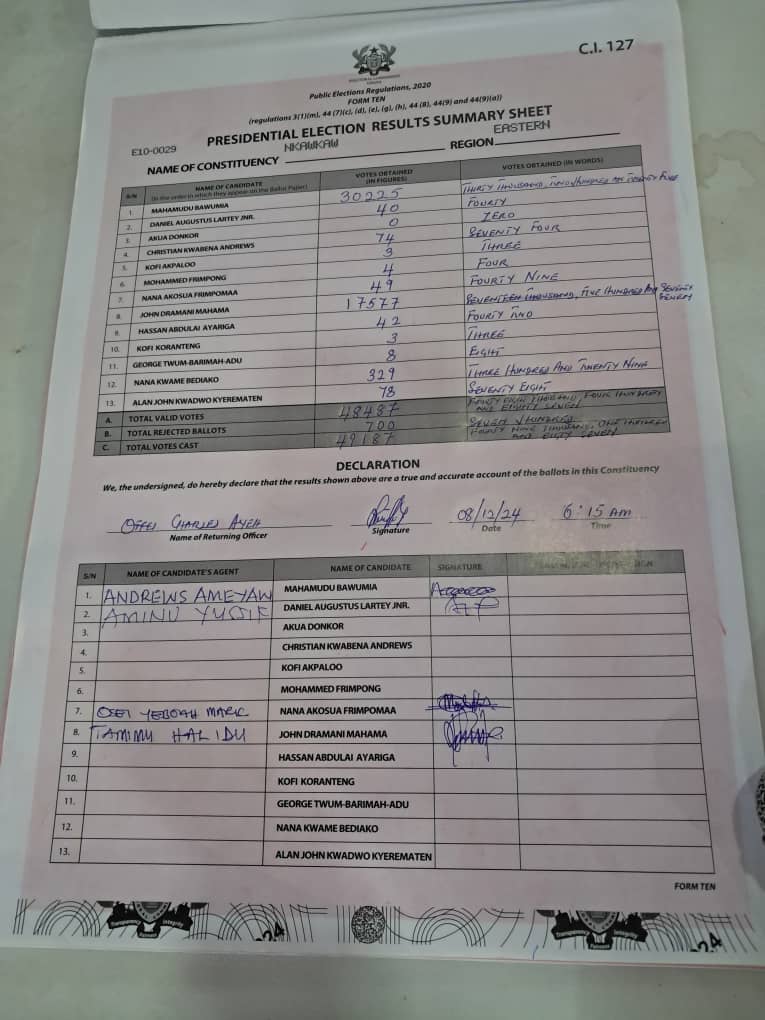 C.I. 127
ELECTORAL COMMISSION
GHANA
Public Elections Regulations, 2020
FORM TEN
(regulations 3(1)(m), 44 (7)(c), (d), (e), (g), (h), 44 (8), 44(9) and 44(9)(a))
PRESIDENTIAL ELECTION RESULTS SUMMARY SHEET
E10-0029
NAME OF CONSTITUENCY NKAWKAW REGION EASTERN
S/N NAME OF CANDIDATE (In the order in which they appear on the Ballot Paper) VOTES OBTAINED (IN FIGURES) VOTES OBTAINED (IN WORDS)
1. MAHAMUDU BAWUMIA 30225 THIRTY THOUSAND, TWO HUNDRED AN TWENTY FIVE
2. DANIEL AUGUSTUS LARTEY JNR. 40 FOURTY
3. AKUA DONKOR 0 ZERO
4. CHRISTIAN KWABENA ANDREWS 74 SEVENTY FOUR
5. KOFI AKPALOO 3 THREE
6. MOHAMMED FRIMPONG 4 FOUR
7. NANA AKOSUA FRIMPOMAA 49 FOURTY NINE
8. JOHN DRAMANI MAHAMA 17577 SEVENTEEN THOUSAND, FIVE HUNDRED AND SEVENTY SEVEN
9. HASSAN ABDULAI AYARIGA 42 FOURTY TWO
10. KOFI KORANTENG 3 THREE
11. GEORGE TWUM-BARIMAH-ADU 8 EIGHT
12. NANA KWAME BEDIAKO 329 THREE HUNDRED AND TWENTY NINE
13. ALAN JOHN KWADWO KYEREMATEN 78 SEVENTY EIGHT
A. TOTAL VALID VOTES 48487 FOURTY EIGHT THOUSAND, FOUR HUNDRED AND EIGHTY SEVEN
B. TOTAL REJECTED BALLOTS 700 SEVEN HUNDRED
C. TOTAL VOTES CAST 49187 FOURTY NINE THOUSAND, ONE HUNDRED AND EIGTY SEVEN
DECLARATION
We, the undersigned, do hereby declare that the results shown above are a true and accurate account of the ballots in this Constituency
OFFEI CHARLES AYEH 08/12/24 6:15 AM
Name of Returning Officer Signature Date Time
S/N NAME OF CANDIDATE'S AGENT NAME OF CANDIDATE SIGNATURE
1. ANDREWS AMEYAW MAHAMUDU BAWUMIA
2. AMINU YUSIF DANIEL AUGUSTUS LARTEY JNR.
3. AKUA DONKOR
4. CHRISTIAN KWABENA ANDREWS
5. KOFI AKPALOO
6. MOHAMMED FRIMPONG
7. OSEI YEBOAH MARK NANA AKOSUA FRIMPOMAA
8. TAMIMU HALIDU JOHN DRAMANI MAHAMA
9. HASSAN ABDULAI AYARIGA
10. KOFI KORANTENG
11. GEORGE TWUM-BARIMAH-ADU
12. NANA KWAME BEDIAKO
13. ALAN JOHN KWADWO KYEREMATEN
FORM TEN
Transparency Integrity
Fairness
Transparency Integrity
Fairness